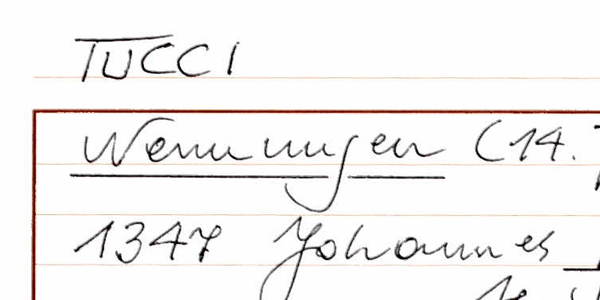 TUCCI
Wennungen (14.
1347 Johannes